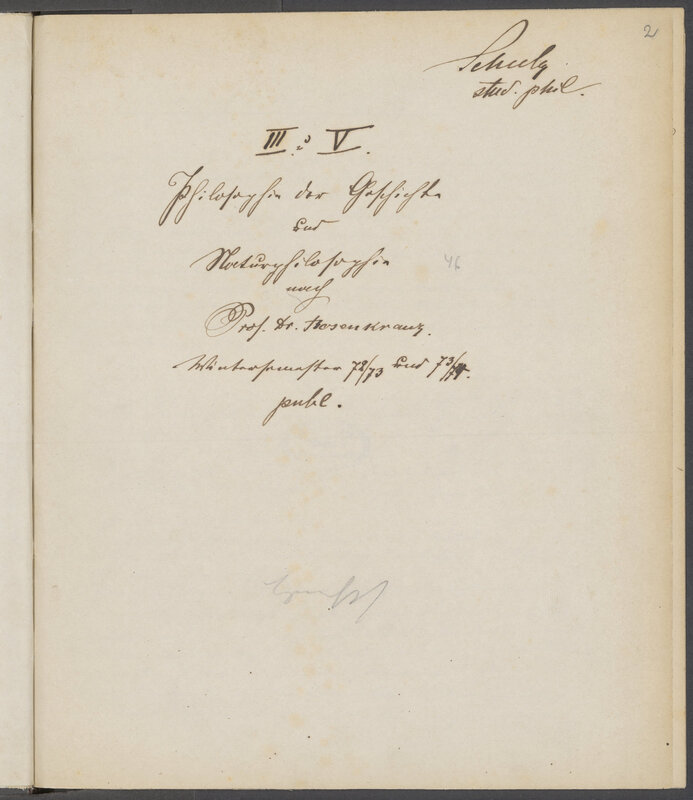 2
Schulz
stud. phil.
III. & V.
Philosophie der Geschichte
und
Naturphilosophie
46
nach
Prof. Dr. Rosenkranz.
Wintersemester 72/73 und 73/74.
publ.